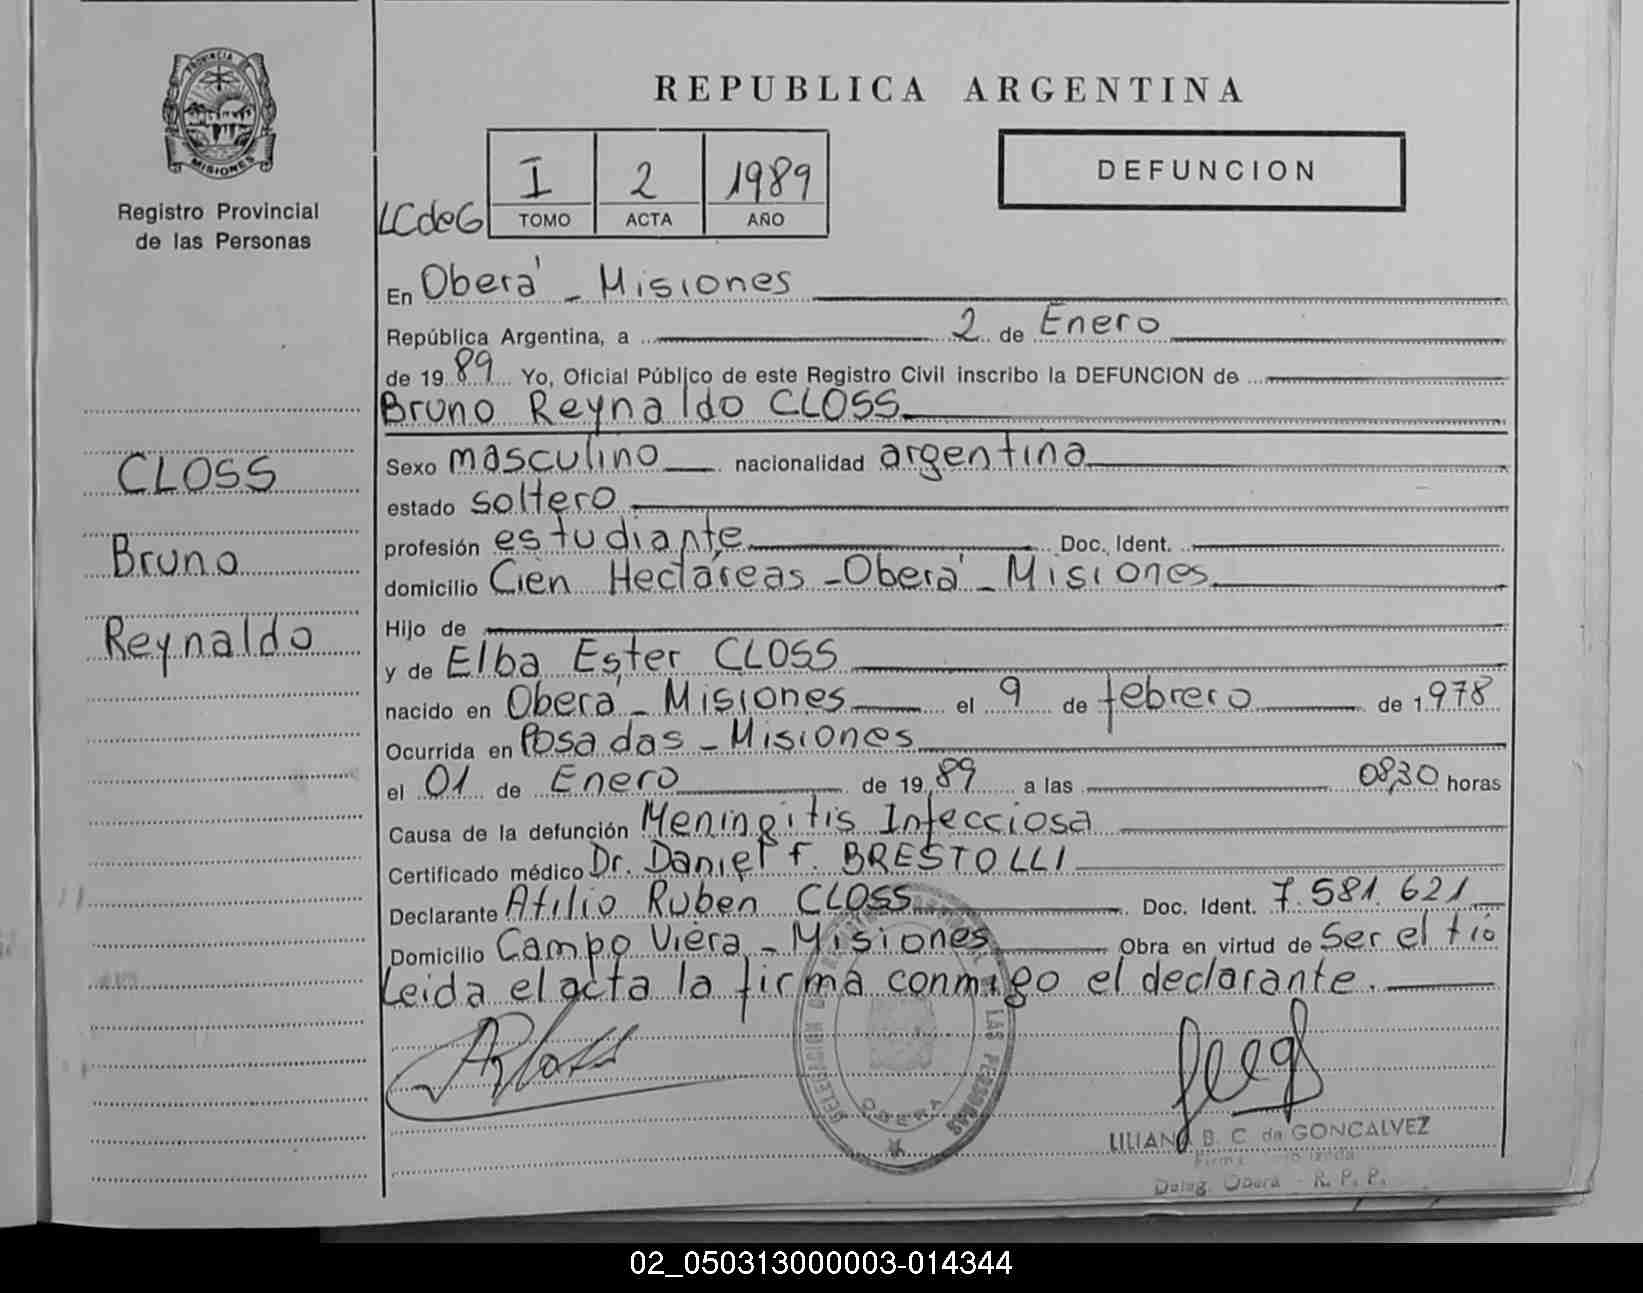 PROVINCIA DE
MISIONES
Registro Provincial
de las Personas
CLOSS
Bruno
Reynaldo
REPUBLICA ARGENTINA
LCdeG
I 2 1989
TOMO ACTA AÑO
DEFUNCION
En Oberá - Misiones
República Argentina, a 2 de Enero
de 19 89 Yo, Oficial Público de este Registro Civil inscribo la DEFUNCION de
Bruno Reynaldo CLOSS
Sexo masculino nacionalidad argentina
estado soltero
profesión estudiante Doc. Ident.
domicilio Cien Hectáreas - Oberá - Misiones
Hijo de
y de Elba Ester CLOSS
nacido en Oberá - Misiones el 9 de febrero de 1.978
Ocurrida en Posadas - Misiones
el 01 de Enero de 19 89 a las 08,30 horas
Causa de la defunción Meningitis Infecciosa
Certificado médico Dr. Daniel F. BRESTOLLI
Declarante Atilio Ruben CLOSS Doc. Ident. 7.581.621
Domicilio Campo Viera - Misiones Obra en virtud de Ser el tío
Leida el acta la firma conmigo el declarante.
LAS PERSONAS
OBERA
LILIANA B. C. de GONCALVEZ
Deleg. Oberá - R. P. P.
02_050313000003-014344